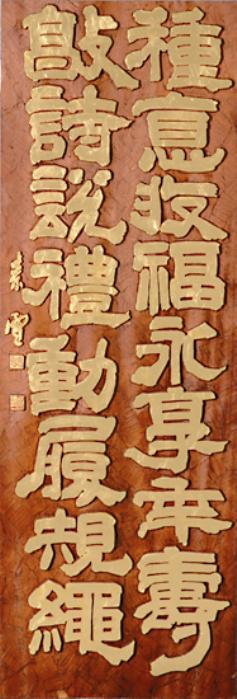 種惪收福永享年壽
敦詩說禮動履規繩